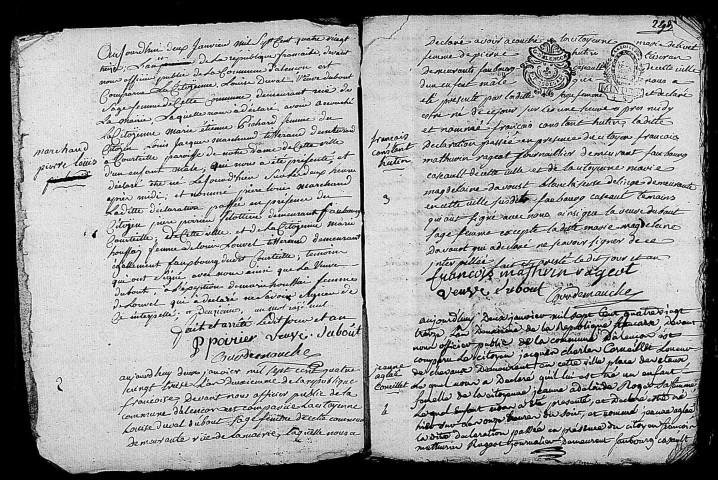 aujourdhui deux Janvier mil Sept Cent quatre vingt
treize, L'an 2e de la republique francaise, devant
nous officier public de la Commune D'alencon est
Comparue La Citoyenne Louise Duval Veuve dubout
Sage femme de Cette Commune, demeurant rue de
La Mairie, Laquelle nous a déclaré avoir accouché
La Citoyenne marie etienne Pichard femme de
Citoyen Louis Jacques marchand tisserand demeurant
a Courteille paroisse de notre dame de Cette ville
D'un Enfant male, qui nous a été présenté, et
déclaré être né de Ce jourdhier heure
apres midi, et nommé pierre louis marchand
Laditte déclaration passée en présence du
Citoyen pierre poirier demeurant faubourg
Courteille de Cette ville et de La Citoyenne marie
houssai femme de louis Louvel tisserand demeurant
egallement faubourg dudit Courteille, temoins
qui ont signé avec nous ainsi que La Veuve
dubout, a l'exception de marie houssai femme
de Louvel qui a déclaré ne Savoir Signer de
Ce interpellé
fait et arrêté Ledit jour et an
P poirier veuve dubout
Courdemanche
marchand
pierre louis
1
aujourdhuy deux janvier mil sept cent quatre
vingt treize L'an deuxieme de la republique
francoise, devant nous officier public de la
commune d'alencon est comparue La citoyenne
Louise duval dubout sage femme de cette commune
demeurante rue de la mairie, laquelle nous a
2
245
déclaré avoir accouché la citoyenne marie
femme de pierre hutin
demeurante faubourg casault de cette ville
d'un enfant male nous a
été présenté par la ditte sage femme et déclaré
estre né de ce jour sur les une heure apres midy
et nommé françois constant hutin la ditte
declaration passée en presence du citoyen francois
mathurin rageot journallier demeurant faubourg
casault de cette ville et de la citoyenne marie
magdelaine davoust blanchisseuse de linge demeurante
en cette ville susdit faubourg casault temoins
qui ont signé avec nous ainsi que la veuve dubout
sage femme excepté la ditte marie magdelaine
davoust qui a declaré ne scavoir signer de ce
interpellée fait et arresté le dit jour et an
francois mathurin rageot
veuve dubout
Courdemanche
francois
constant
hutin
3
aujourdhuy deux janvier mil sept cent quatre vingt
treize L'an Deuxieme de la Republique francaise devant
nous officier public de la commune D'alencon est
comparu Le citoyen jacques charles Cornillet Loueur
de chevaux Demeurant en cette ville place
Lequel nous a Declaré qu'il lui est né un enfant
femelle de la citoyenne jeanne adelaide Roger sa femme
Lequel enfant nous a été présenté, et Declaré être né
hier sur les onze heures du soir, et nommé jeanne aglaé
la ditte declaration passée en présence du citoyen francois
mathurin Rageot journalier demeurant faubourg casault
jeanne
aglaé
Cornillet
4